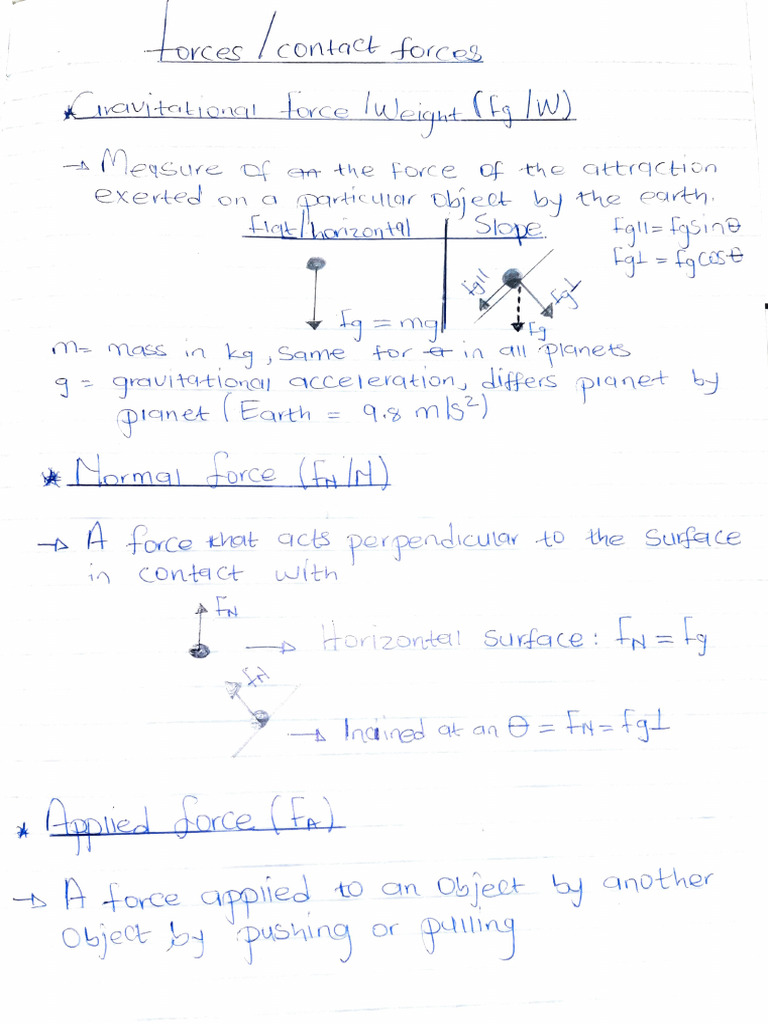 Forces / contact forces
* Gravitational force / Weight (Fg / W)
→ Measure of the force of the attraction
exerted on a particular object by the earth.
Flat / horizontal
Slope
Fg|| = Fg sinθ
Fg⊥ = Fg cosθ
Fg||
Fg⊥
Fg
Fg = mg
m = mass in kg, same for in all planets
g = gravitational acceleration, differs planet by
planet (Earth = 9.8 m/s²)
* Normal force (FN / N)
→ A force that acts perpendicular to the surface
in contact with
FN
→ Horizontal surface: FN = Fg
FN
→ Inclined at an θ = FN = Fg⊥
* Applied force (FA)
→ A force applied to an object by another
object, by pushing or pulling